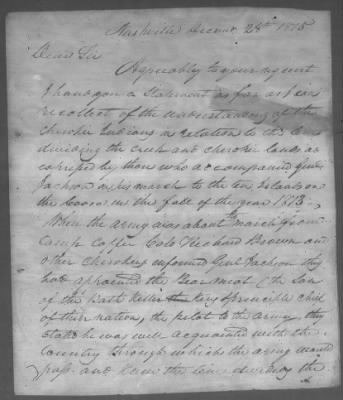 Nashville Decemr 28th 1815
Dear Sir
Agreeably to your request
I hand you a Statement as far as I can
recollect of the understanding of the
cherokee Indians in relation to the line
dividing the creek and cherokee lands, as
expressed by those who accompanied Genl
Jackson in his march to the ten islands on
the Coosa, in the fall of the year 1813.
When the army was about to march from
camp Coffee Colo Richard Brown and
other Cherokees informed Genl Jackson they
had appointed the Bear meat (the Son
of the Path Killer the King & principle chief
of their nation, the pilot to the army, they
stated he was well acquainted with the
Country through which the army would
pass and knew the line dividing the